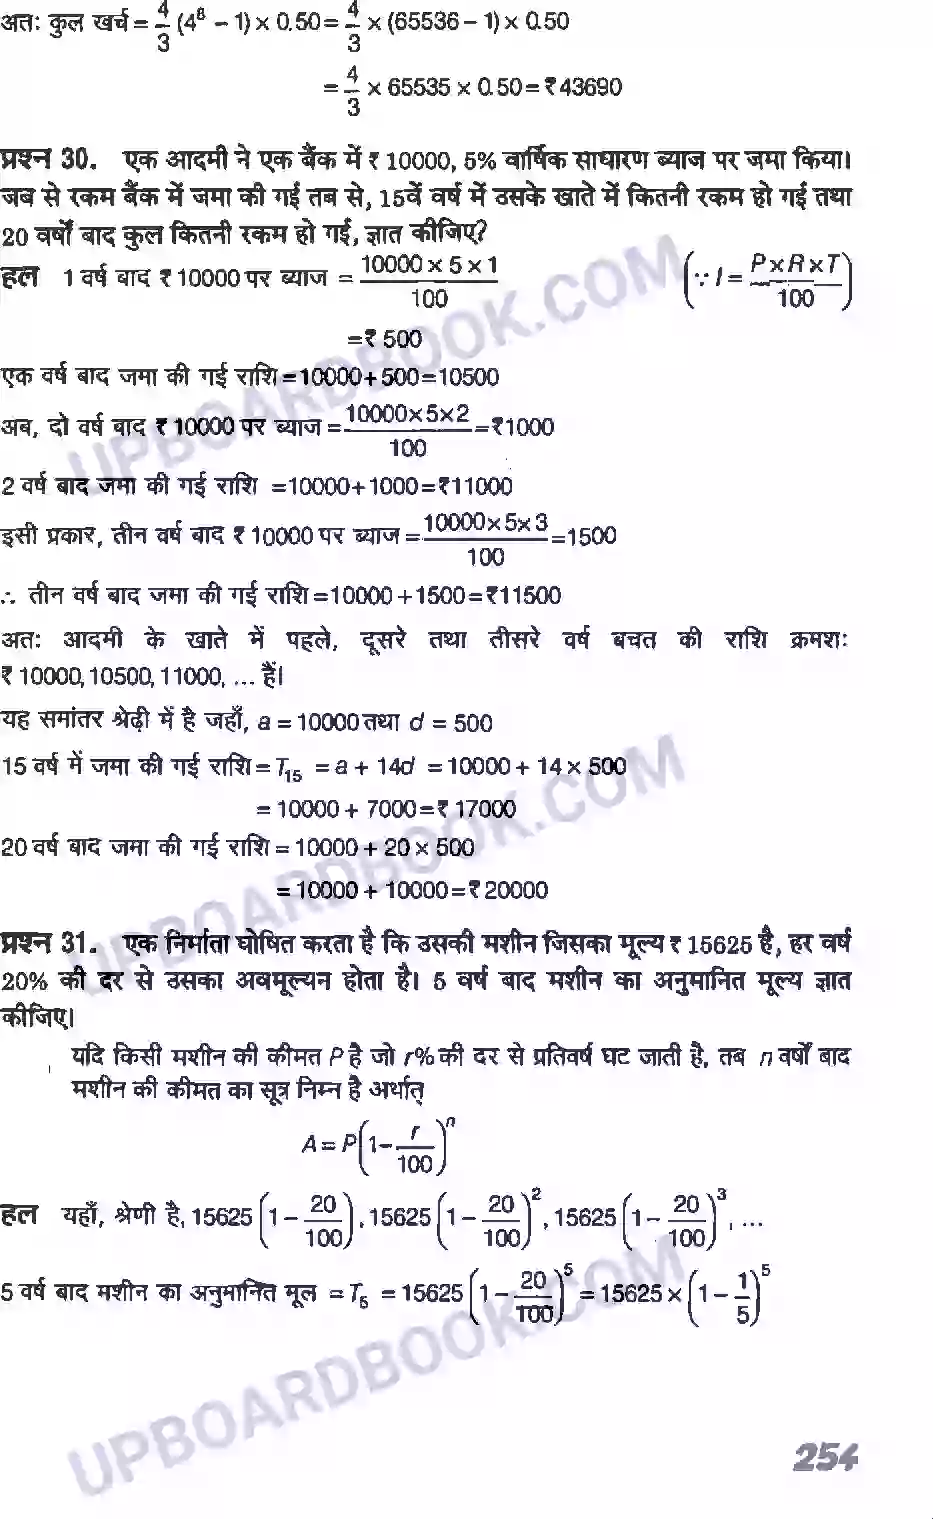 अतः कुल खर्च = 4/3 (4⁸ − 1) × 0.50 = 4/3 × (65536 − 1) × 0.50
= 4/3 × 65535 × 0.50 = ₹43690
प्रश्न 30. एक आदमी ने एक बैंक में ₹ 10000, 5% वार्षिक साधारण ब्याज पर जमा किया।
जब से रकम बैंक में जमा की गई तब से, 15वें वर्ष में उसके खाते में कितनी रकम हो गई तथा
20 वर्षों बाद कुल कितनी रकम हो गई, ज्ञात कीजिए?
हल 1 वर्ष बाद ₹ 10000 पर ब्याज = (10000 × 5 × 1)/100 (∵ I = (P×R×T)/100)
=₹ 500
एक वर्ष बाद जमा की गई राशि =10000+500=10500
अब, दो वर्ष बाद ₹ 10000 पर ब्याज = (10000×5×2)/100 =₹1000
2 वर्ष बाद जमा की गई राशि =10000+1000=₹11000
इसी प्रकार, तीन वर्ष बाद ₹ 10000 पर ब्याज = (10000×5×3)/100 =1500
∴ तीन वर्ष बाद जमा की गई राशि =10000+1500=₹11500
अतः आदमी के खाते में पहले, दूसरे तथा तीसरे वर्ष बचत की राशि क्रमशः
₹ 10000, 10500, 11000, ... हैं।
यह समांतर श्रेढ़ी में है जहाँ, a = 10000 तथा d = 500
15 वर्ष में जमा की गई राशि = T₁₅ = a + 14d = 10000 + 14 × 500
= 10000 + 7000=₹ 17000
20 वर्ष बाद जमा की गई राशि = 10000 + 20 × 500
= 10000 + 10000=₹ 20000
प्रश्न 31. एक निर्माता घोषित करता है कि उसकी मशीन जिसका मूल्य ₹ 15625 है, हर वर्ष
20% की दर से उसका अवमूल्यन होता है। 5 वर्ष बाद मशीन का अनुमानित मूल्य ज्ञात
कीजिए।
यदि किसी मशीन की कीमत P है जो r% की दर से प्रतिवर्ष घट जाती है, तब n वर्षों बाद
मशीन की कीमत का सूत्र निम्न है अर्थात्
A = P(1 − r/100)ⁿ
हल यहाँ, श्रेणी है, 15625(1 − 20/100), 15625(1 − 20/100)², 15625(1 − 20/100)³, ...
5 वर्ष बाद मशीन का अनुमानित मूल = T₅ = 15625(1 − 20/100)⁵ = 15625 × (1 − 1/5)⁵
254
UPBOARDBOOK.COM
UPBOARDBOOK.COM
UPBOARDBOOK.COM